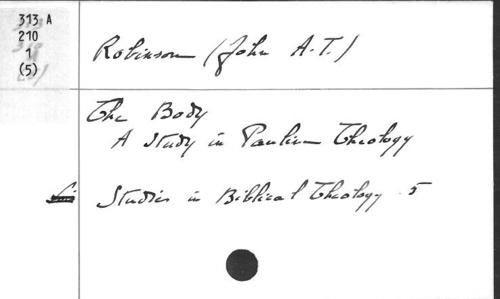 313 A
210
1
(5)
Robinson (John A.T.)
The Body
A Study in Pauline Theology
Studies in Biblical Theology 5